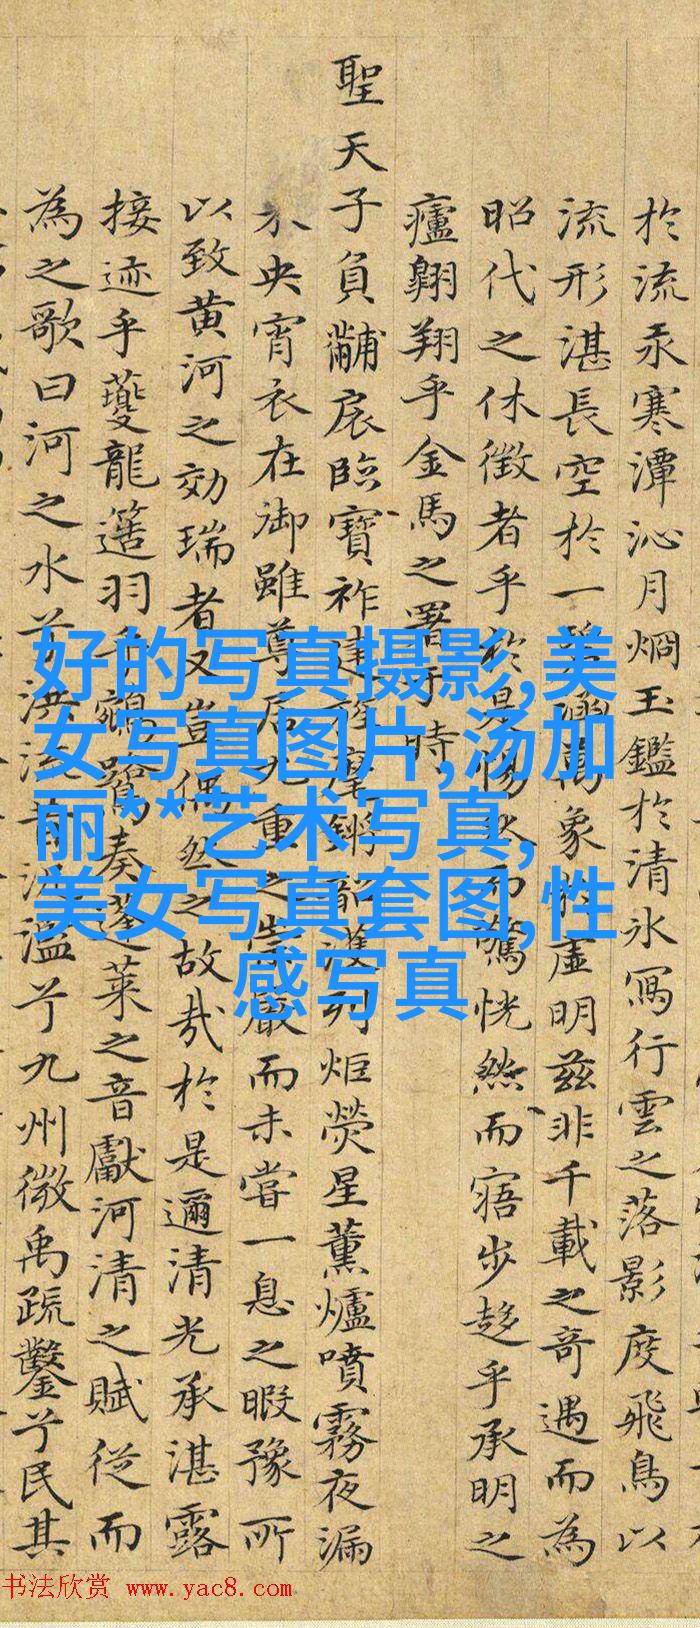 於流汞寒潭沁月烱玉鑑於清氷寫行雲之落影度飛鳥以
流形湛長空於一涵萬象於虛明茲非千載之奇遇而為
昭代之休徵者乎於是惕然而驚恍然而寤步趍乎承明之
廬翱翔乎金馬之署于時
聖天子負黼扆臨寶祚建麾鏘韶濩列炬熒星薰爐噴霧夜漏
未央宵衣在御雖尊居九重之崇嚴而未嘗一息之暇豫所
以致黄河之効瑞者又豈偶然之故哉於是邇清光承湛露
接迹乎夔龍簉羽乎鵷鷺奏蓬莱之音獻河清之賦從而
為之歌曰河之水兮洪流昔濫兮九州微禹疏鑿兮民其
好的写真摄影,美
女写真图片,汤加
丽**艺术写真,
美女写真套图,性
感写真
书法欣赏 www.yac8.com